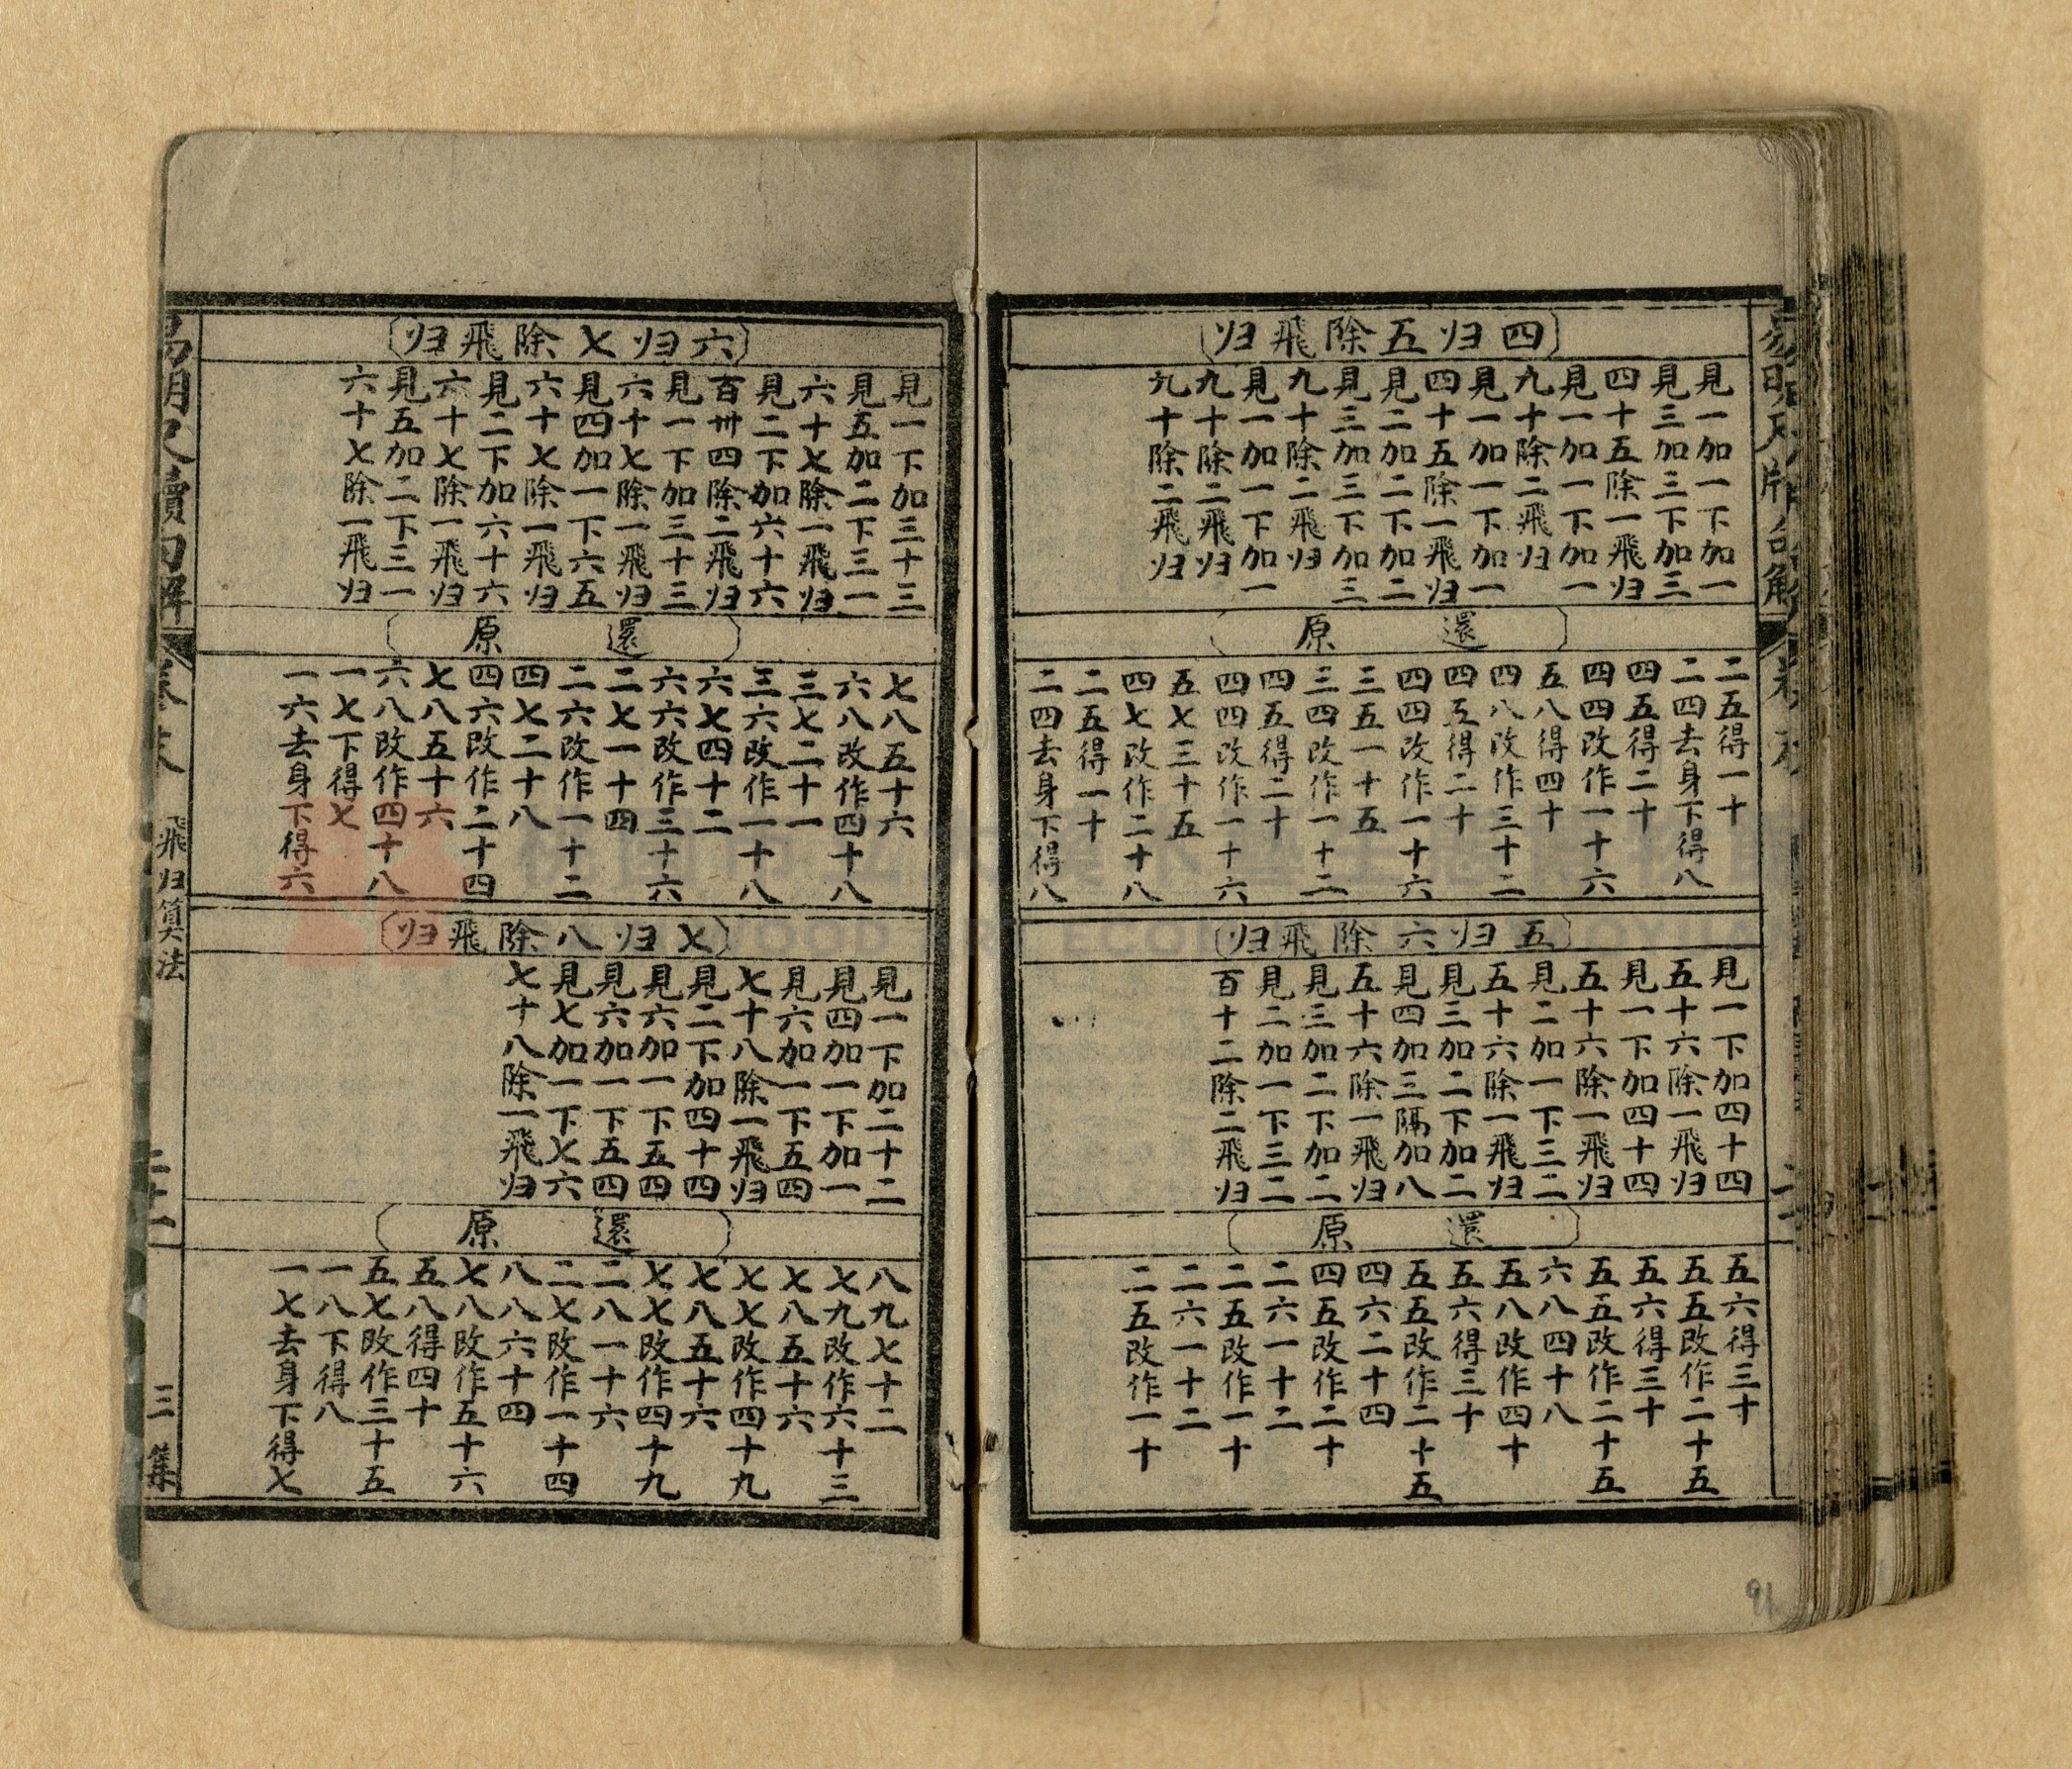 四归五除飛归
見一加一下加一
見三加三下加三
四十五除一飛归
見一加一下加一
九十除二飛归
見一加一下加一
四十五除一飛归
見二加二下加二
見三加三下加三
九十除二飛归
見一加一下加一
九十除二飛归
九十除二飛归
還原
二五得一十
二四去身下得八
四五得二十
四四改作一十六
五八得四十
四八改作三十二
四五得二十
四四改作一十六
三五一十五
三四改作一十二
四五得二十
四四改作一十六
五七三十五
四七改作二十八
二五得一十
二四去身下得八
五归六除飛归
見一下加四十四
五十六除一飛归
見一下加四十四
五十六除一飛归
見二加一下三二
五十六除一飛归
見三加二下加二
見四加三隔加八
五十六除一飛归
見三加二下加二
見二加一下三二
百十二除二飛归
還原
五六得三十
五五改作二十五
五六得三十
五五改作二十五
六八四十八
五八改作四十
五六得三十
五五改作二十五
四六二十四
四五改作二十
二六一十二
二五改作一十
二六一十二
二五改作一十
六归七除飛归
見一下加三十三
見五加二下三一
六十七除一飛归
見二下加六十六
百卅四除二飛归
見一下加三十三
六十七除一飛归
見四加一下六五
六十七除一飛归
見二下加六十六
六十七除一飛归
見五加二下三一
六十七除一飛归
還原
七八五十六
六八改作四十八
三七二十一
三六改作一十八
六七四十二
六六改作三十六
二七一十四
二六改作一十二
四七二十八
四六改作二十四
七八五十六
六八改作四十八
一七下得七
一六去身下得六
七归八除飛归
見一下加二十二
見四加一下加一
見六加一下五四
七十八除一飛归
見二下加四十四
見六加一下五四
見六加一下五四
見七加一下七六
七十八除一飛归
還原
八九七十二
七九改作六十三
七八五十六
七七改作四十九
七八五十六
七七改作四十九
二八一十六
二七改作一十四
八八六十四
七八改作五十六
五八得四十
五七改作三十五
一八下得八
一七去身下得七
飛归算法
二十一
三集
91